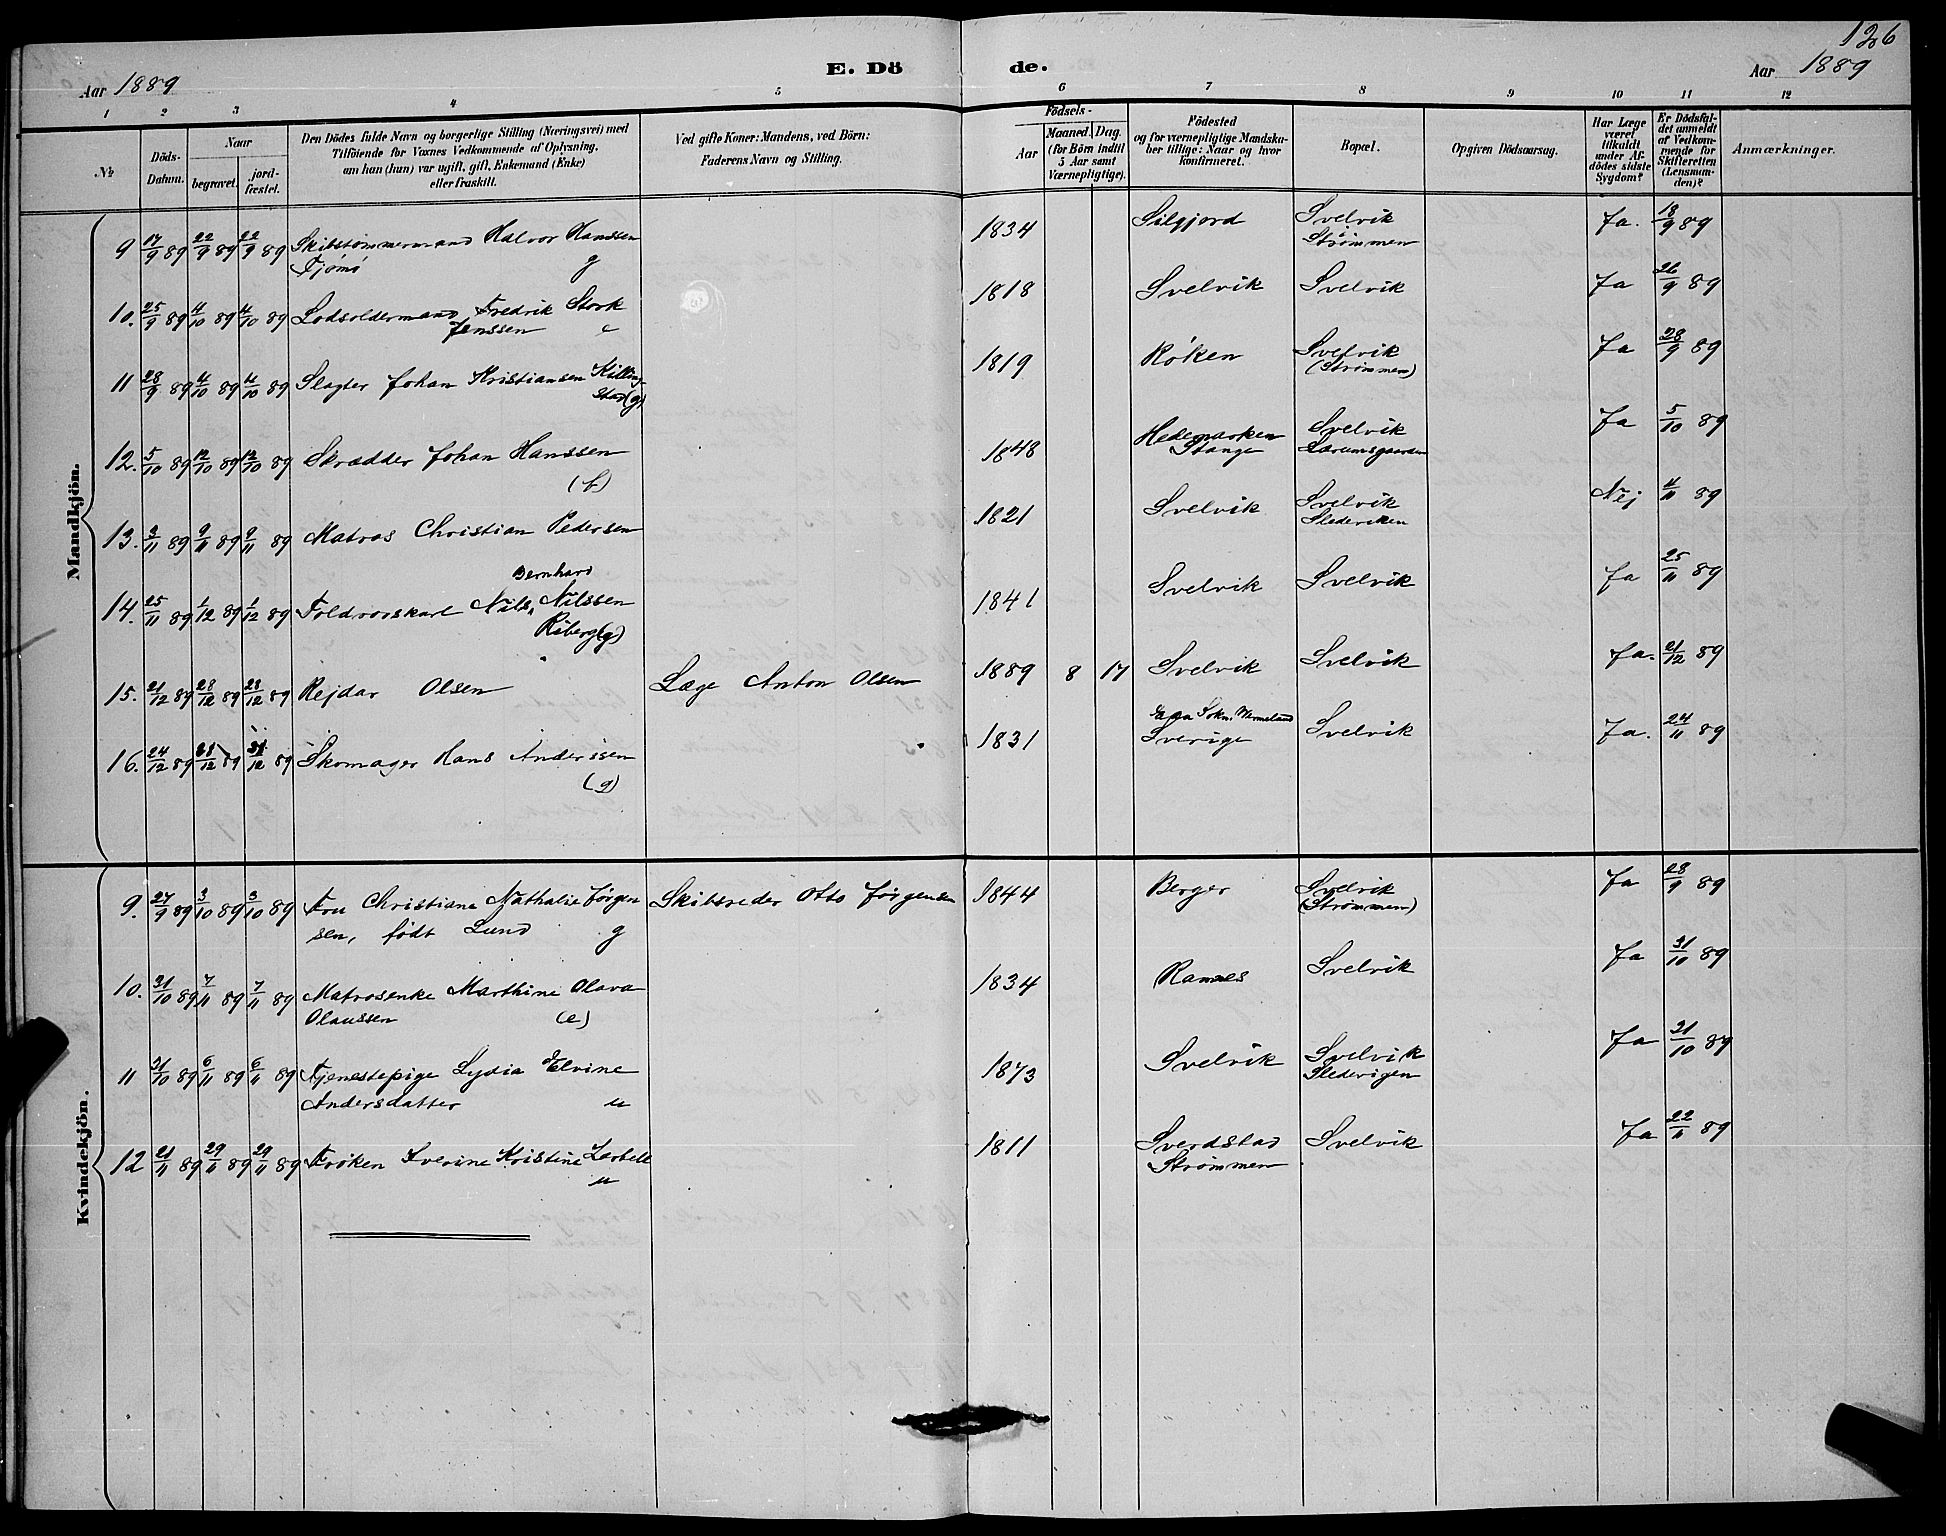 126
Aar 1889 E. Dö de. Aar 1889
1 2 3 4 5 6 7 8 9 10 11 12
№
Döds-Datum.
Naar
begravet.
jord-fæstet.
Den Dödes fulde Navn og borgerlige Stilling (Næringsvei) med
Tilföiende for Voxnes Vedkommende af Oplysning,
om han (hun) var ugift, gift, Enkemand (Enke)
eller fraskilt.
Ved gifte Koner: Mandens, ved Börn:
Faderens Navn og Stilling.
Födsels-
Aar
Maaned. Dag.
(for Börn indtil
5 Aar samt
Værnepligtige).
Födested
og for værnepligtige Mandska-
ber tillige: Naar og hvor
konfirmeret.
Bopæl.
Opgiven Dödsaarsag.
Har Læge
været
tilkaldt
under Af-
dödes sidste
Sygdom?
Er Dödsfal-
det anmeldt
af Vedkom-
mende for
Skifteretten
(Lensman-
den)?
Anmærkninger.
Mandkjön.
9 17/9 89 22/9 89 22/9 89 Skibstømmermand Halvor Hanssen 1834 Silgjord Svelvik Ja. 18/9 89
Tjømø g Strømmen
10. 25/9 89 4/10 89 4/10 89 Lodsoldermand Fredrik Stork 1818 Svelvik Svelvik Ja 26/9 89
Jenssen e
11 28/9 89 4/10 89 4/10 89 Slagter Johan Kristiansen Killing- 1819 Røken Svelvik Ja 28/9 89
stad (g) (Strømmen)
12. 5/10 89 12/10 89 12/10 89 Skrædder Johan Hanssen 1848 Hedemarken Svelvik Ja 5/10 89
Stange
13. 3/11 89 9/11 89 9/11 89 Matros Christian Pedersen 1821 Svelvik Svelvik Nej 4/11 89
Slederiken
Bernhard
14. 25/11 89 1/12 89 1/12 89 Toldroerskarl Nils Nilssen 1841 Svelvik Svelvik Ja 25/11 89
Riberg (g)
15. 21/12 89 28/12 89 28/12 89 Rejdar Olsen Læge Anton Olsen 1889 8 17 Svelvik Svelvik Ja. 21/12 89
16. 24/12 89 31/12 89 31/12 89 Skomager Hans Anderssen 1831 Sokn. Wermeland Sverige Svelvik Ja. 24/11 89
(g)
Kvindekjön.
9. 27/9 89 3/10 89 3/10 89 Fru Christiane Nathalie Jørgen Skibsreder Otto Jørgensen 1844 Berger Svelvik Ja 28/9 89
sen, født Lund g (Strømmen)
10. 31/10 89 7/11 89 7/11 89 Matrosenke Marthine Olava 1834 Ramnes Svelvik Ja 31/10 89
Olaussen (e)
11 31/10 89 6/11 89 6/11 89 Tjenestepige Lydia Elvine 1873 Svelvik Svelvik Ja 31/10 89
Andersdatter u Slederigen
12 21/11 89 29/11 89 29/11 89 Frøken Iverine Kristine Zarbell 1811 Sverdstad Svelvik Ja 22/11 89
u Strømmen